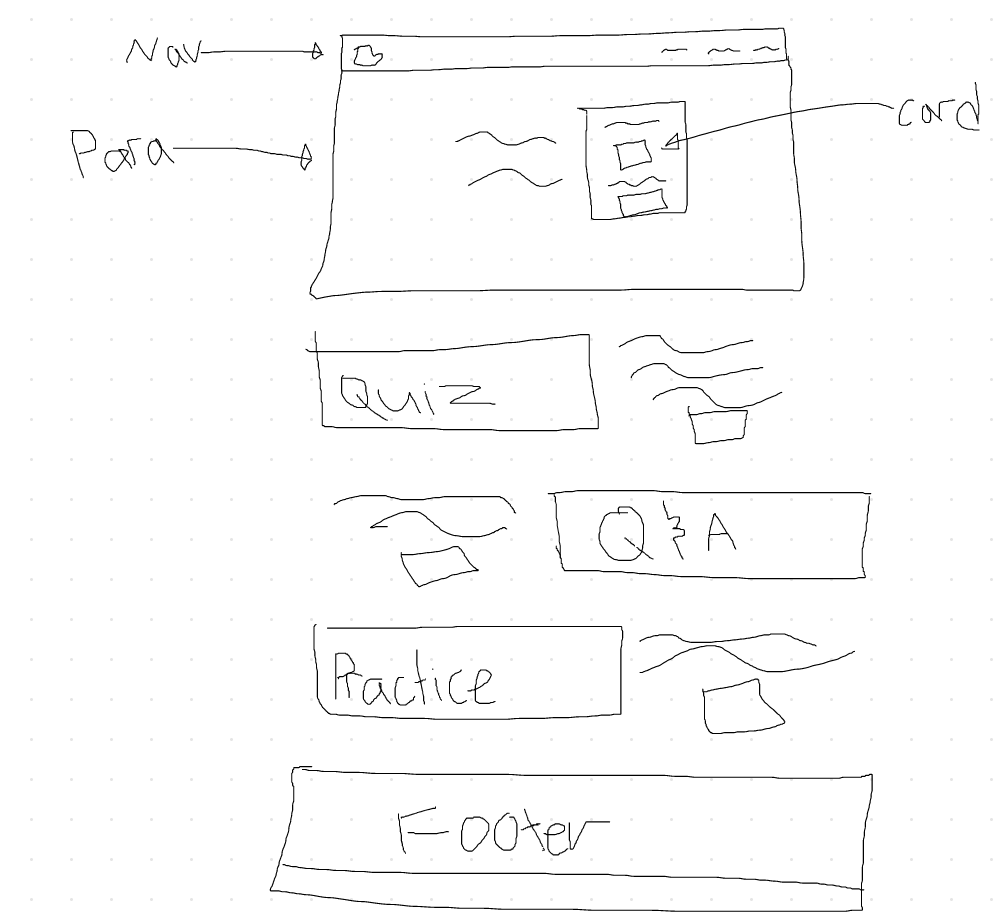 Nav
card
Para
Quiz
Q & A
Practice
Footer